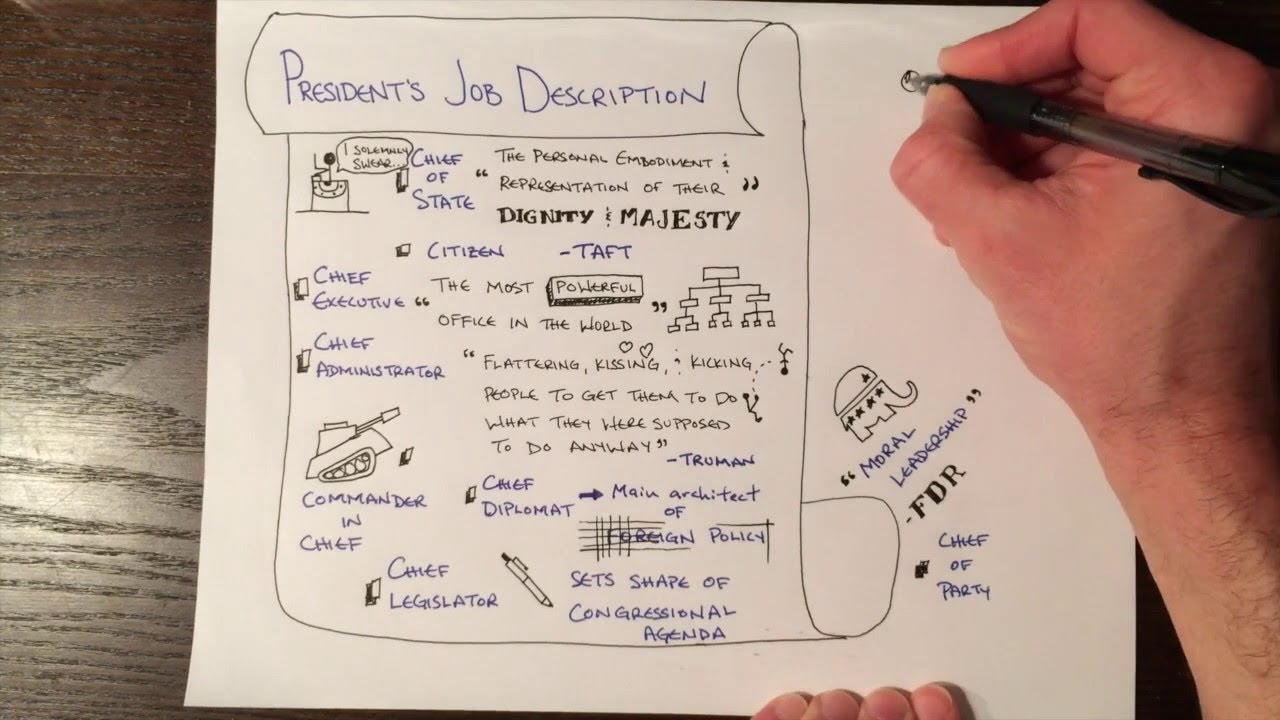 PRESIDENT'S JOB DESCRIPTION
I SOLEMNLY
SWEAR...
CHIEF
OF
STATE
"THE PERSONAL EMBODIMENT &
REPRESENTATION OF THEIR"
DIGNITY & MAJESTY
CITIZEN
-TAFT
CHIEF
EXECUTIVE
"THE MOST POWERFUL
OFFICE IN THE WORLD"
CHIEF
ADMINISTRATOR
"FLATTERING, KISSING, & KICKING
PEOPLE TO GET THEM TO DO
WHAT THEY WERE SUPPOSED
TO DO ANYWAY"
-TRUMAN
COMMANDER
IN
CHIEF
CHIEF
DIPLOMAT
→ Main architect
OF
FOREIGN POLICY
CHIEF
LEGISLATOR
SETS SHAPE OF
CONGRESSIONAL
AGENDA
"MORAL
LEADERSHIP"
-FDR
CHIEF
OF
PARTY